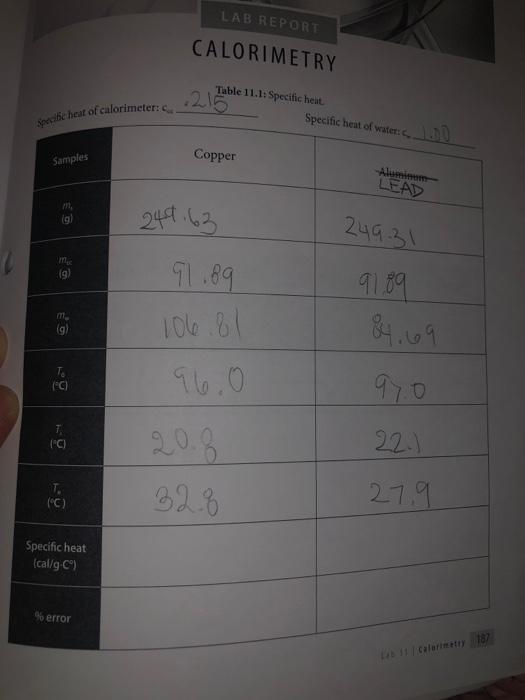 LAB REPORT
CALORIMETRY
Table 11.1: Specific heat.
Specific heat of calorimeter: c .215
Specific heat of water: c 1.00
Samples Copper Aluminum LEAD
m (g) 249.63 249.31
m (g) 91.89 91.89
m (g) 106.81 84.69
T₀ (°C) 96.0 97.0
T (°C) 20.8 22.1
T (°C) 32.8 27.9
Specific heat (cal/g·C°)
% error
Lab 11 | Calorimetry 187